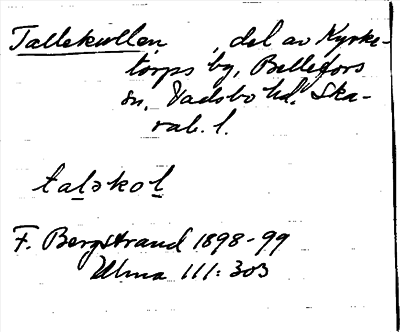 Tallekullen, del av Kyrke-
torps by, Bellefors
sn, Vadsbo hd. Ska-
rab. l.
taləkol
F. Bergstrand 1898-99
Ulma 111:303